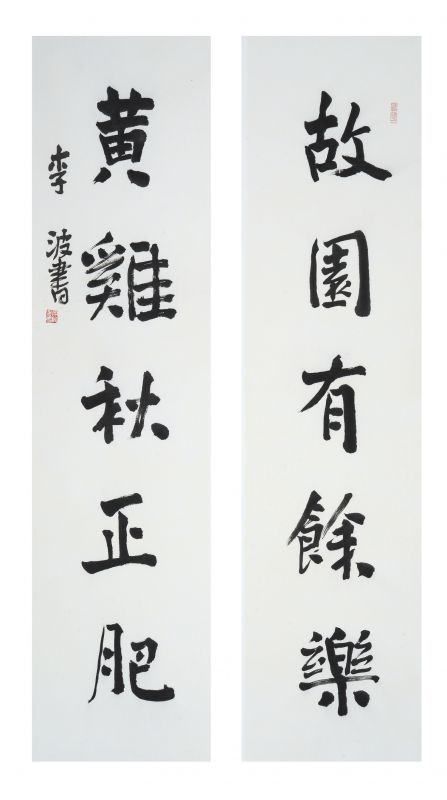 故園有餘樂
黄雞秋正肥
李波書